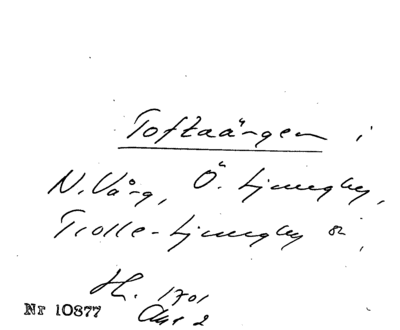 Toftaängen i
N. Vång, Ö. Ljungby,
Trolle-Ljungby sn,
H. 1701
Akt 2
Nr 10877